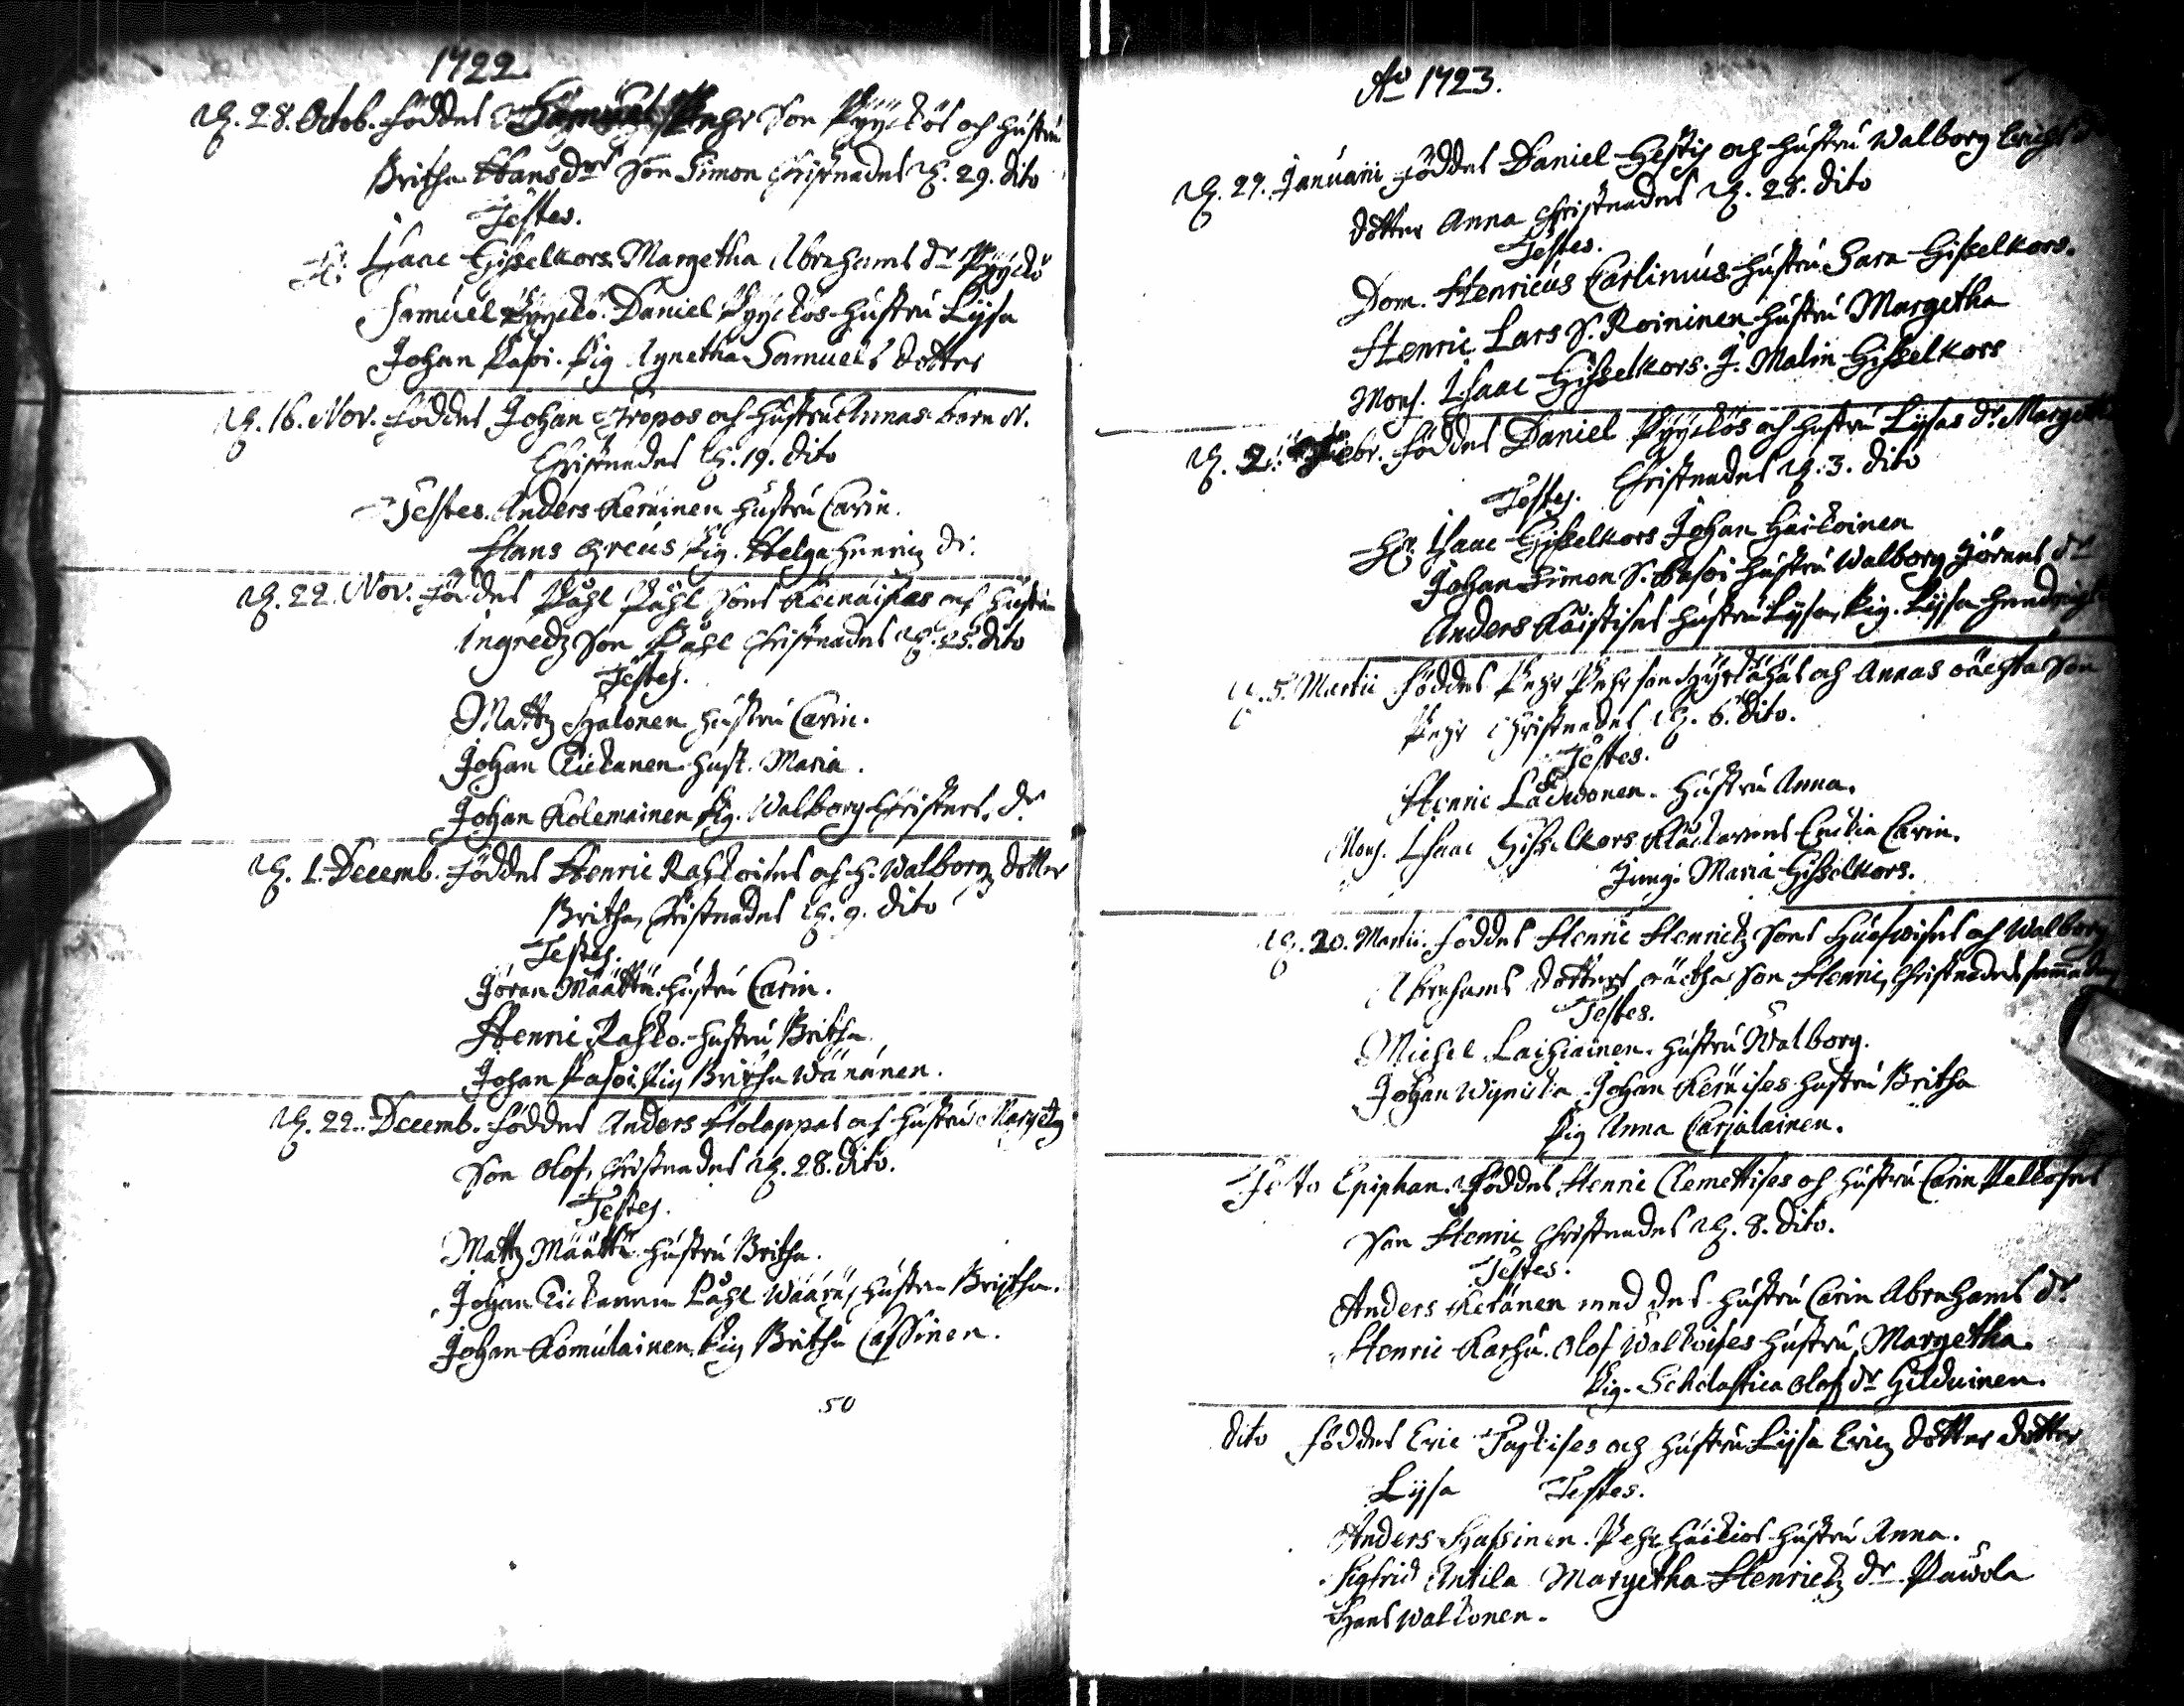 1722
D. 28. Octob. föddes Samuel Pehr Son Pyyckös och hustru
Britha Hans dr Son Simon Christnades D. 29. dito
Testes.
H. Isaac Gisselkors. Margetha Abrahams dr Pyyckö
Samuel Pyyckö. Daniel Pyyckös hustru Lysa
Johan Pasoi. Pig Agnetha Samuels dotter
D. 16. Nov. föddes Johan Tropos och hustru Annas barn N.
Christnades D. 19. dito
Testes. Anders Keräinen hustru Carin.
Hans Greus Pig. Helga Henriz dr.
D. 22. Nov. föddes Påhl Påhl Sons och hustru
Ingredz Son Påhl Christnades D. 25. dito
Testes.
Mattz Halonen hustru Carin.
Johan Kickanen hust. Maria.
Johan Kolemainen Pig. Walborg Christers dr
D. 1. Decemb. föddes Henric Rahkoises och h. Walborgz dotter
Britha, Christnades D. 9. dito
Testes.
Jöran Määttä hustru Carin.
Henric Rahko. hustru Britha
Johan Pasoi. Pig Britha Wänänen.
D. 22. Decemb. föddes Anders Holappas och hustru Margetz
Son Olof, Christnades D. 28. dito.
Testes.
Mattz Määttä hustru Britha.
Johan Kickanen Påhl hustru Britha.
Johan Komulainen. Pig Britha Cassinen.
50
Ao 1723.
D. 27. Januarii föddes Daniel Hestis och hustru Walborg Erichs
dotter Anna Christnades D. 28. dito
Testes.
Dom. Henricus Carlinius. hustru Sara Gisselkors.
Henric Lars S. Roininen hustru Margetha
Mons. Isaac Gisselkors. J. Malin Gisselkors
D. 2. Febr. föddes Daniel Pyyckös och hustru Lysas dr Margeth
Testes. Christnades D. 3. dito
Hr. Isaac Gisselkors Johan Häikoinen
Johan Simon S. Pasoi hustru Walborg Jörans dr
Anders hustru Lysa, Pig. Lysa Hendrichs
D. 5. Martii föddes Pehr Pehr son och Annas oächta Son
Pehr Christnades D. 6. dito.
Testes.
Henric Lackwonen. hustru Anna.
Mons. Isaac Gisselkors Klåckarens Enckia Carin.
Jung. Maria Gisselkors.
D. 20. Martii. föddes Henric Henrickz Sons och Walborg
Abrahams dotters oäctha Son Henric, Christnades samma dag
Testes.
Michel Laihiainen. hustru Walborg.
Johan Johan Keräises hustru Britha
Pig Anna Carjalainen.
Festo Epiphan. föddes Henric Clemettises och hustru Carin Pelkoses
Son Henric Christnades D. 8. dito.
Testes.
Anders Keränen med des hustru Carin Abrahams dr
Henric Karhu. Olof Walkoises hustru Margetha.
Pig. Scholastica Olofz dr
dito föddes Eric Taskises och hustru Lysa Ericz dotter dotter
Lysa Testes.
Anders Hassinen. Pehr hustru Anna.
Sigfrid Antila Margetha Henrickz dr Pawola
Hans Walkonen.